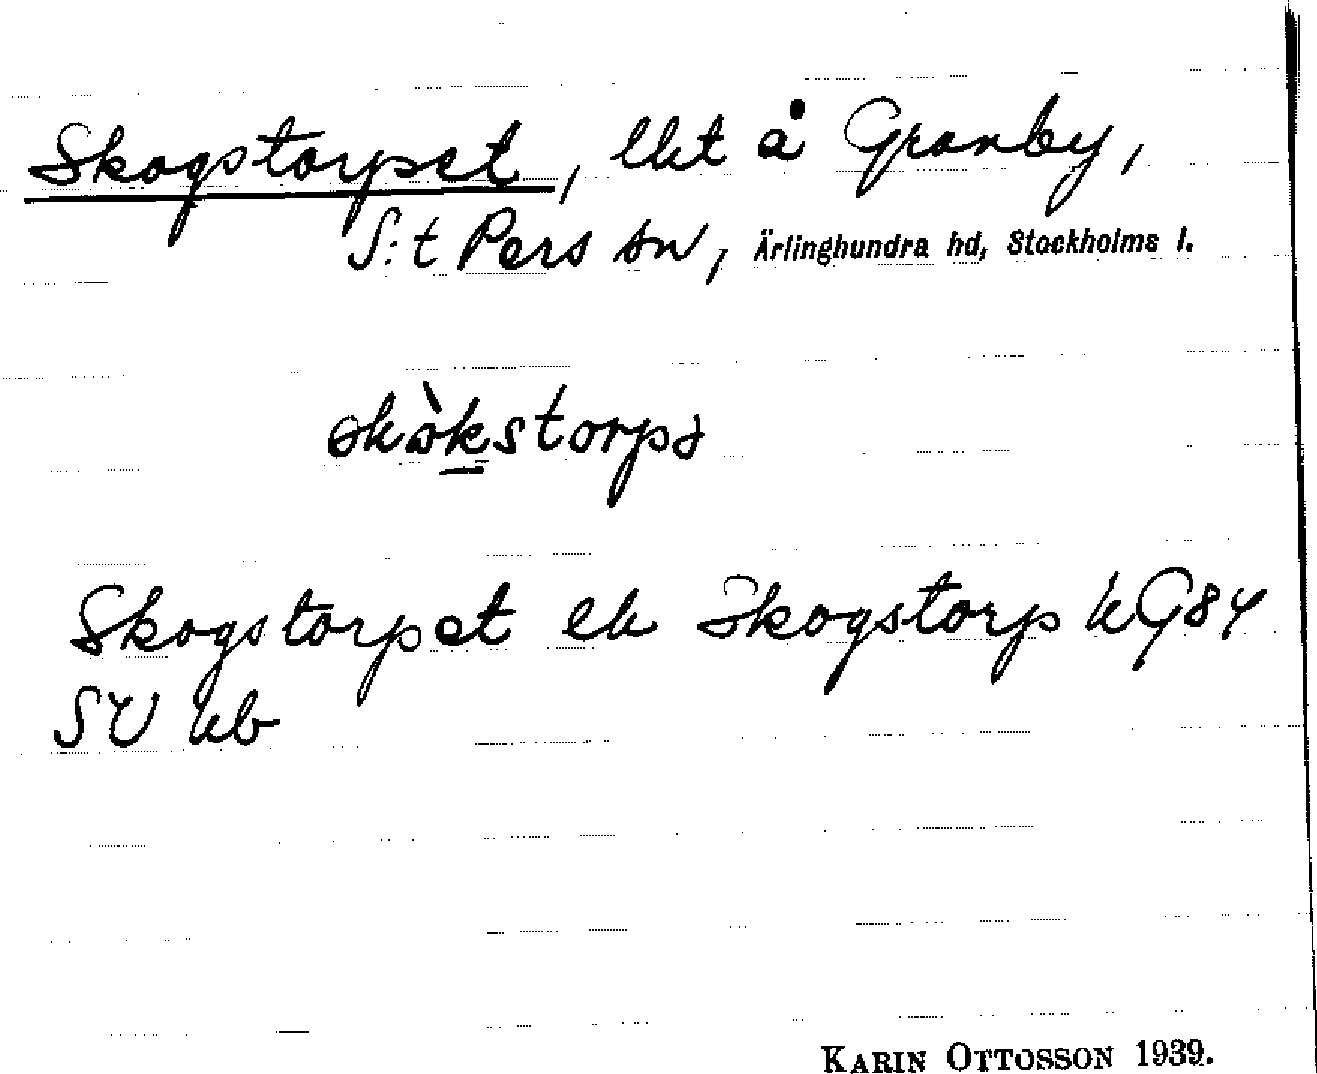 Skogstorpet, lht å Granby,
S:t Pers sn, Ärlinghundra hd, Stockholms l.
skòkstorpə
Skogstorpet el. Skogstorp kG84
SV kb
KARIN OTTOSSON 1939.